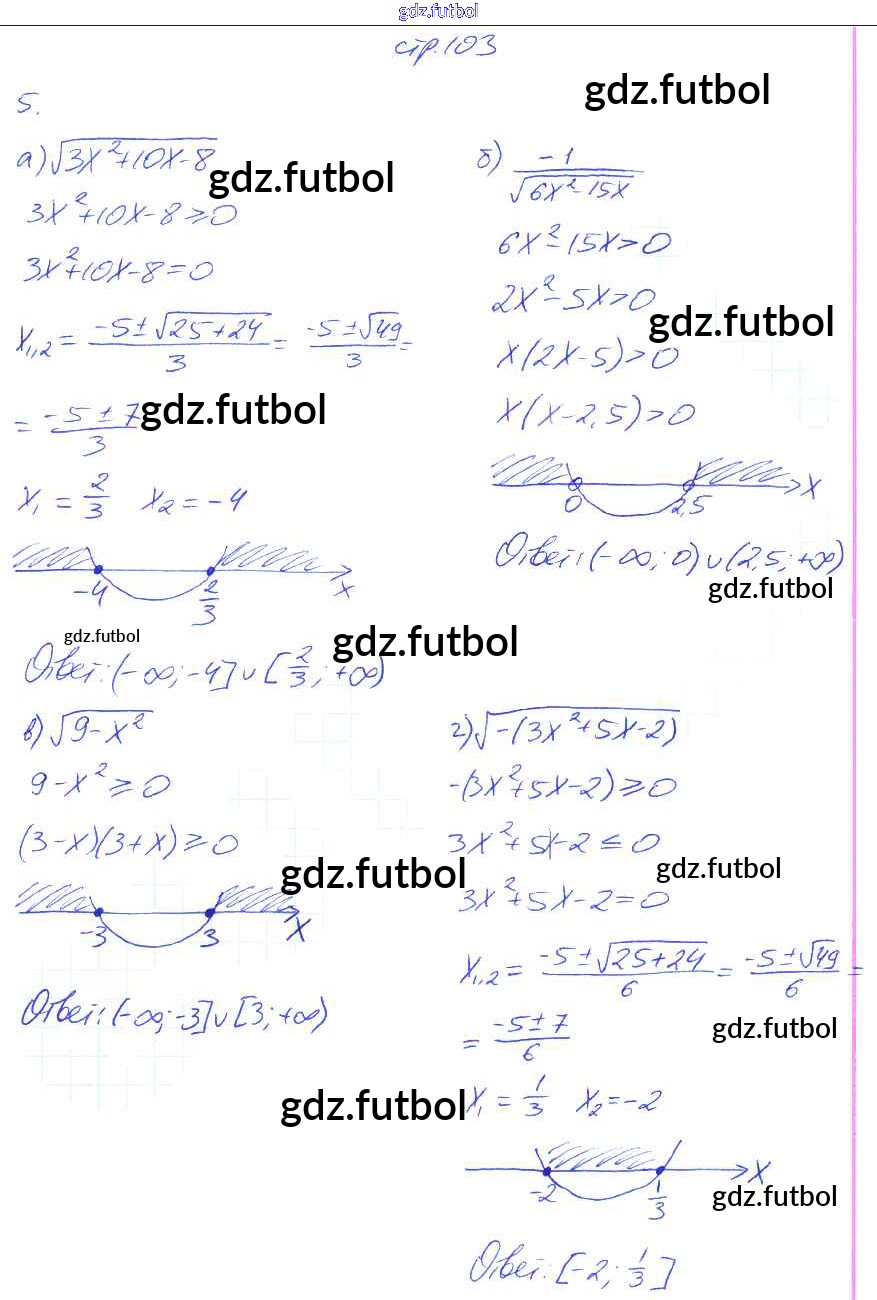 gdz.futbol
стр.103
gdz.futbol
5.
а) √(3x²+10x-8)
gdz.futbol
3x²+10x-8≥0
3x²+10x-8=0
x₁,₂ = (-5±√(25+24))/3 = (-5±√49)/3 =
= (-5±7)/3
gdz.futbol
x₁ = 2/3 x₂ = -4
-4 2/3 x
gdz.futbol
gdz.futbol
Ответ: (-∞; -4]∪[2/3; +∞)
б) -1/√(6x²-15x)
6x²-15x>0
2x²-5x>0
gdz.futbol
x(2x-5)>0
x(x-2,5)>0
0 2,5 x
Ответ: (-∞; 0)∪(2,5; +∞)
gdz.futbol
в) √(9-x²)
9-x²≥0
(3-x)(3+x)≥0
gdz.futbol
-3 3 x
Ответ: (-∞; -3]∪[3; +∞)
gdz.futbol
г) √(-(3x²+5x-2))
-(3x²+5x-2)≥0
3x²+5x-2≤0
gdz.futbol
3x²+5x-2=0
x₁,₂ = (-5±√(25+24))/6 = (-5±√49)/6 =
= (-5±7)/6
gdz.futbol
x₁ = 1/3 x₂ = -2
-2 1/3 x
gdz.futbol
Ответ: [-2; 1/3]